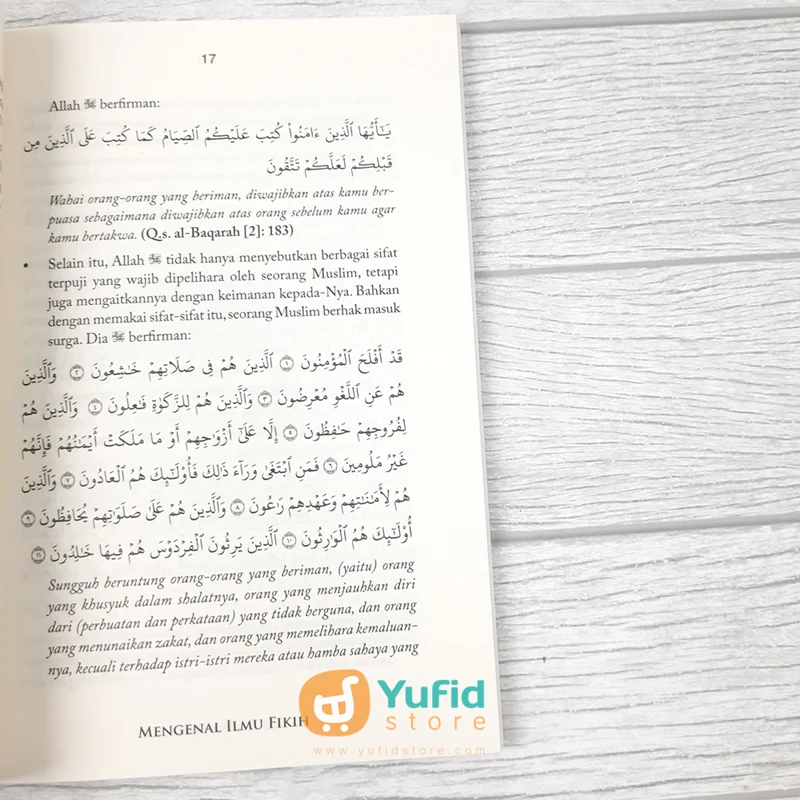 17
Allah ﷻ berfirman:
يَـٰٓأَيُّهَا ٱلَّذِينَ ءَامَنُوا۟ كُتِبَ عَلَيْكُمُ ٱلصِّيَامُ كَمَا كُتِبَ عَلَى ٱلَّذِينَ مِن
قَبْلِكُمْ لَعَلَّكُمْ تَتَّقُونَ
Wahai orang-orang yang beriman, diwajibkan atas kamu ber-
puasa sebagaimana diwajibkan atas orang sebelum kamu agar
kamu bertakwa. (Q.s. al-Baqarah [2]: 183)
• Selain itu, Allah ﷻ tidak hanya menyebutkan berbagai sifat
terpuji yang wajib dipelihara oleh seorang Muslim, tetapi
juga mengaitkannya dengan keimanan kepada-Nya. Bahkan
dengan memakai sifat-sifat itu, seorang Muslim berhak masuk
surga. Dia ﷻ berfirman:
قَدْ أَفْلَحَ ٱلْمُؤْمِنُونَ ١ ٱلَّذِينَ هُمْ فِى صَلَاتِهِمْ خَـٰشِعُونَ ٢ وَٱلَّذِينَ
هُمْ عَنِ ٱللَّغْوِ مُعْرِضُونَ ٣ وَٱلَّذِينَ هُمْ لِلزَّكَوٰةِ فَـٰعِلُونَ ٤ وَٱلَّذِينَ هُمْ
لِفُرُوجِهِمْ حَـٰفِظُونَ ٥ إِلَّا عَلَىٰٓ أَزْوَٰجِهِمْ أَوْ مَا مَلَكَتْ أَيْمَـٰنُهُمْ فَإِنَّهُمْ
غَيْرُ مَلُومِينَ ٦ فَمَنِ ٱبْتَغَىٰ وَرَآءَ ذَٰلِكَ فَأُو۟لَـٰٓئِكَ هُمُ ٱلْعَادُونَ ٧ وَٱلَّذِينَ
هُمْ لِأَمَـٰنَـٰتِهِمْ وَعَهْدِهِمْ رَٰعُونَ ٨ وَٱلَّذِينَ هُمْ عَلَىٰ صَلَوَٰتِهِمْ يُحَافِظُونَ ٩
أُو۟لَـٰٓئِكَ هُمُ ٱلْوَٰرِثُونَ ١٠ ٱلَّذِينَ يَرِثُونَ ٱلْفِرْدَوْسَ هُمْ فِيهَا خَـٰلِدُونَ ١١
Sungguh beruntung orang-orang yang beriman, (yaitu) orang
yang khusyuk dalam shalatnya, orang yang menjauhkan diri
dari (perbuatan dan perkataan) yang tidak berguna, dan orang
yang menunaikan zakat, dan orang yang memelihara kemaluan-
nya, kecuali terhadap istri-istri mereka atau hamba sahaya yang
MENGENAL ILMU FIKIH
Yufid
store
www.yufidstore.com